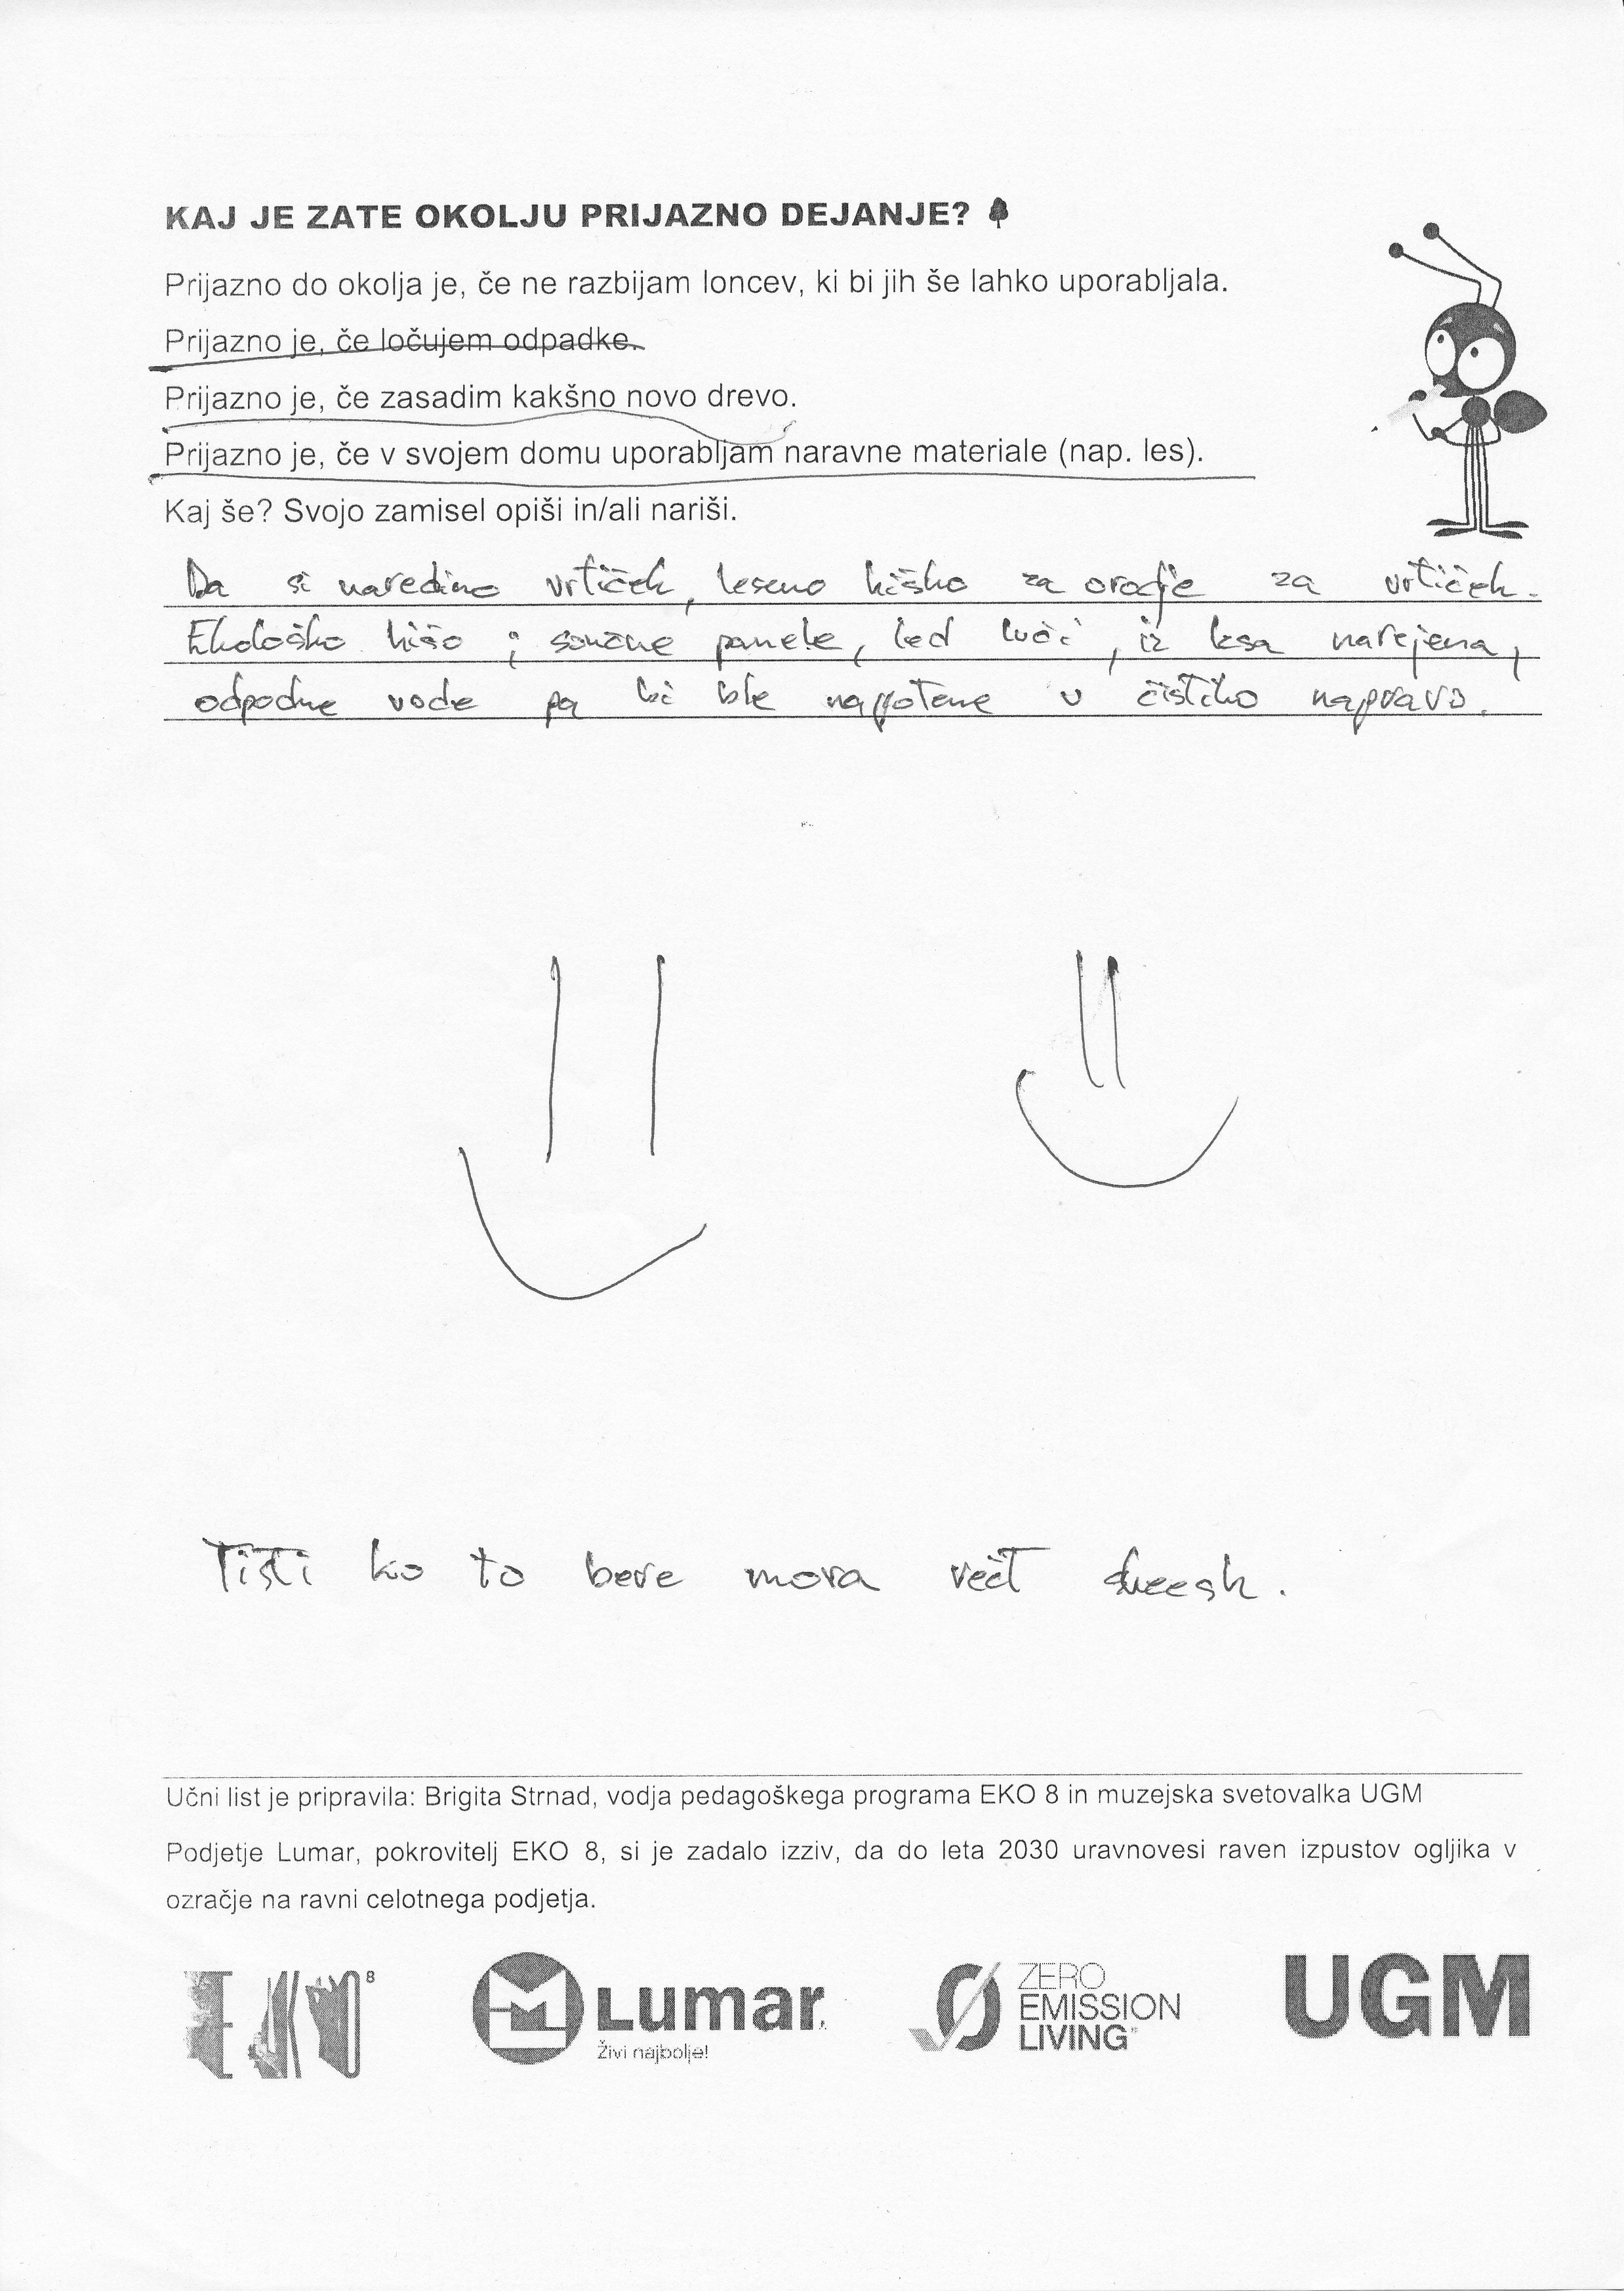 KAJ JE ZATE OKOLJU PRIJAZNO DEJANJE?
Prijazno do okolja je, če ne razbijam loncev, ki bi jih še lahko uporabljala.
Prijazno je, če ločujem odpadke.
Prijazno je, če zasadim kakšno novo drevo.
Prijazno je, če v svojem domu uporabljam naravne materiale (nap. les).
Kaj še? Svojo zamisel opiši in/ali nariši.
Da si naredimo vrtiček, leseno hiško za orodje za vrtiček.
Ekološko hišo ; sončne panele, led luči, iz lesa narejena,
odpodne vode pa bi ble napotene v čistilno napravo.
Tisti ko to bere mora rečt
Učni list je pripravila: Brigita Strnad, vodja pedagoškega programa EKO 8 in muzejska svetovalka UGM
Podjetje Lumar, pokrovitelj EKO 8, si je zadalo izziv, da do leta 2030 uravnovesi raven izpustov ogljika v
ozračje na ravni celotnega podjetja.
EKO 8
Lumar
Živi najbolje!
ZERO
EMISSION
LIVING
UGM